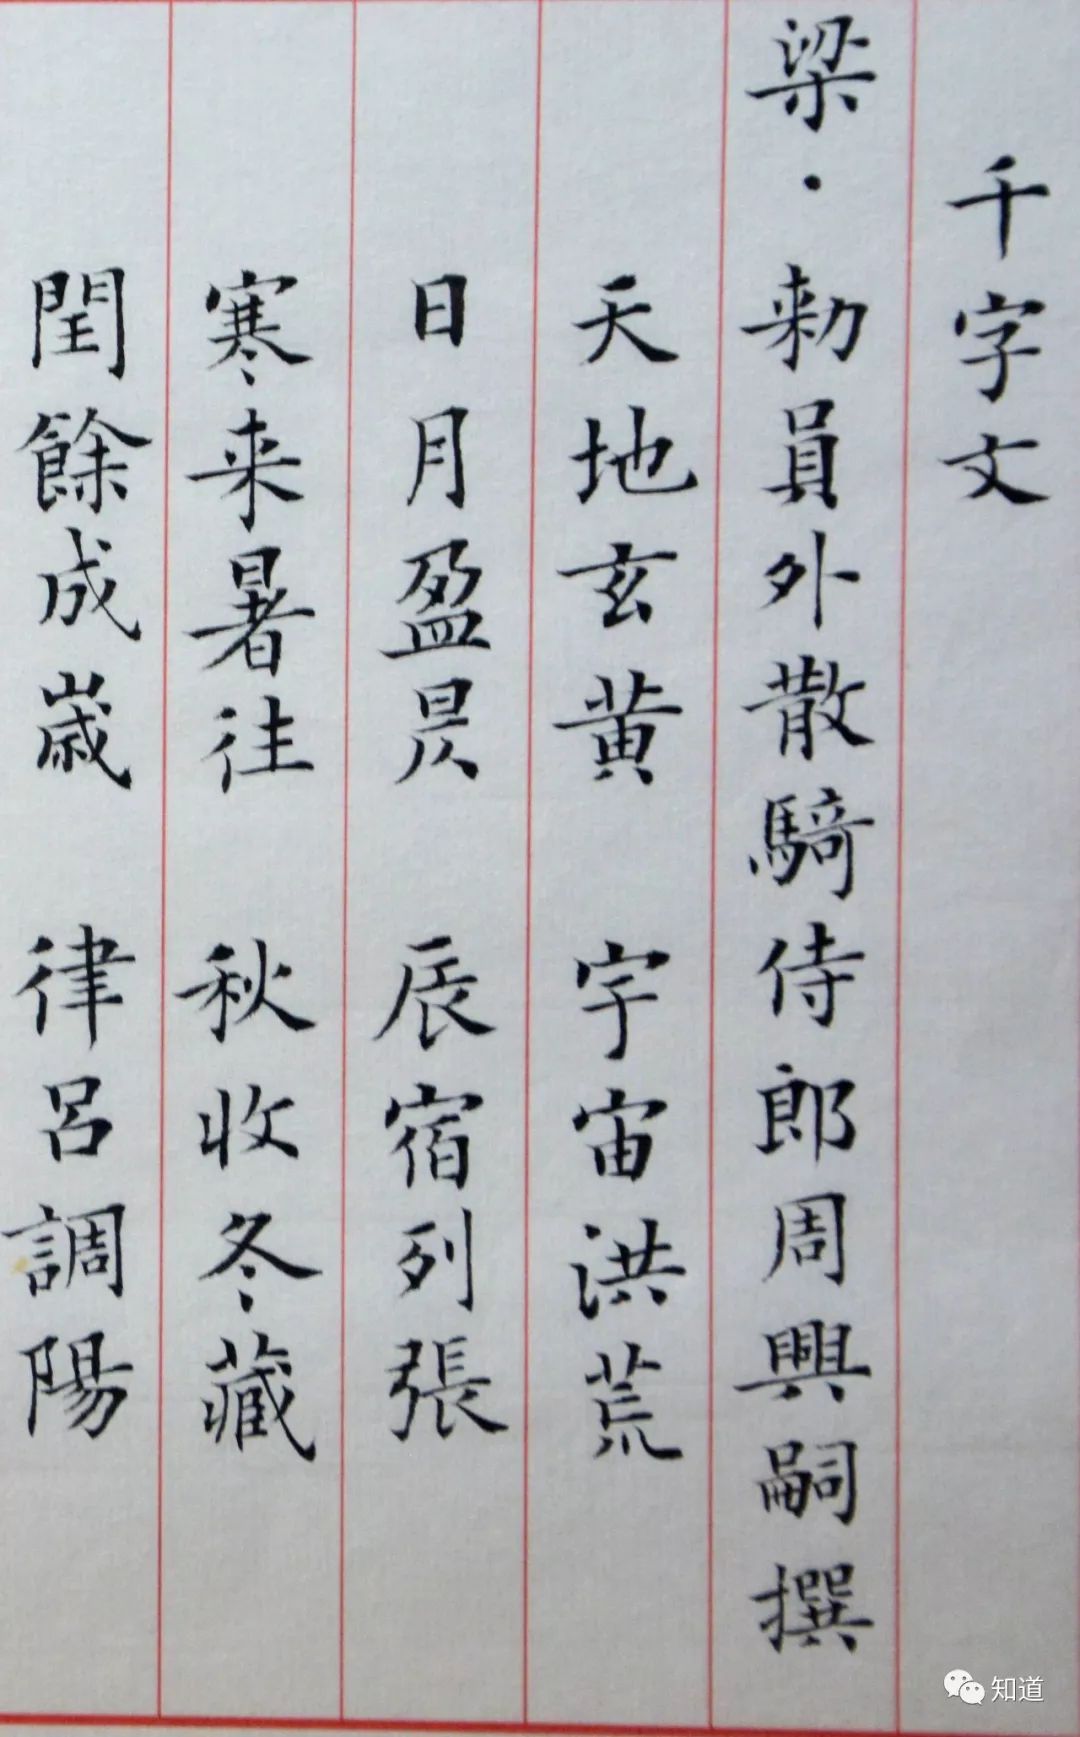 千字文
梁·勑員外散騎侍郎周興嗣撰
天地玄黃 宇宙洪荒
日月盈昃 辰宿列張
寒来暑往 秋收冬藏
閏餘成歳 律呂調陽
知道